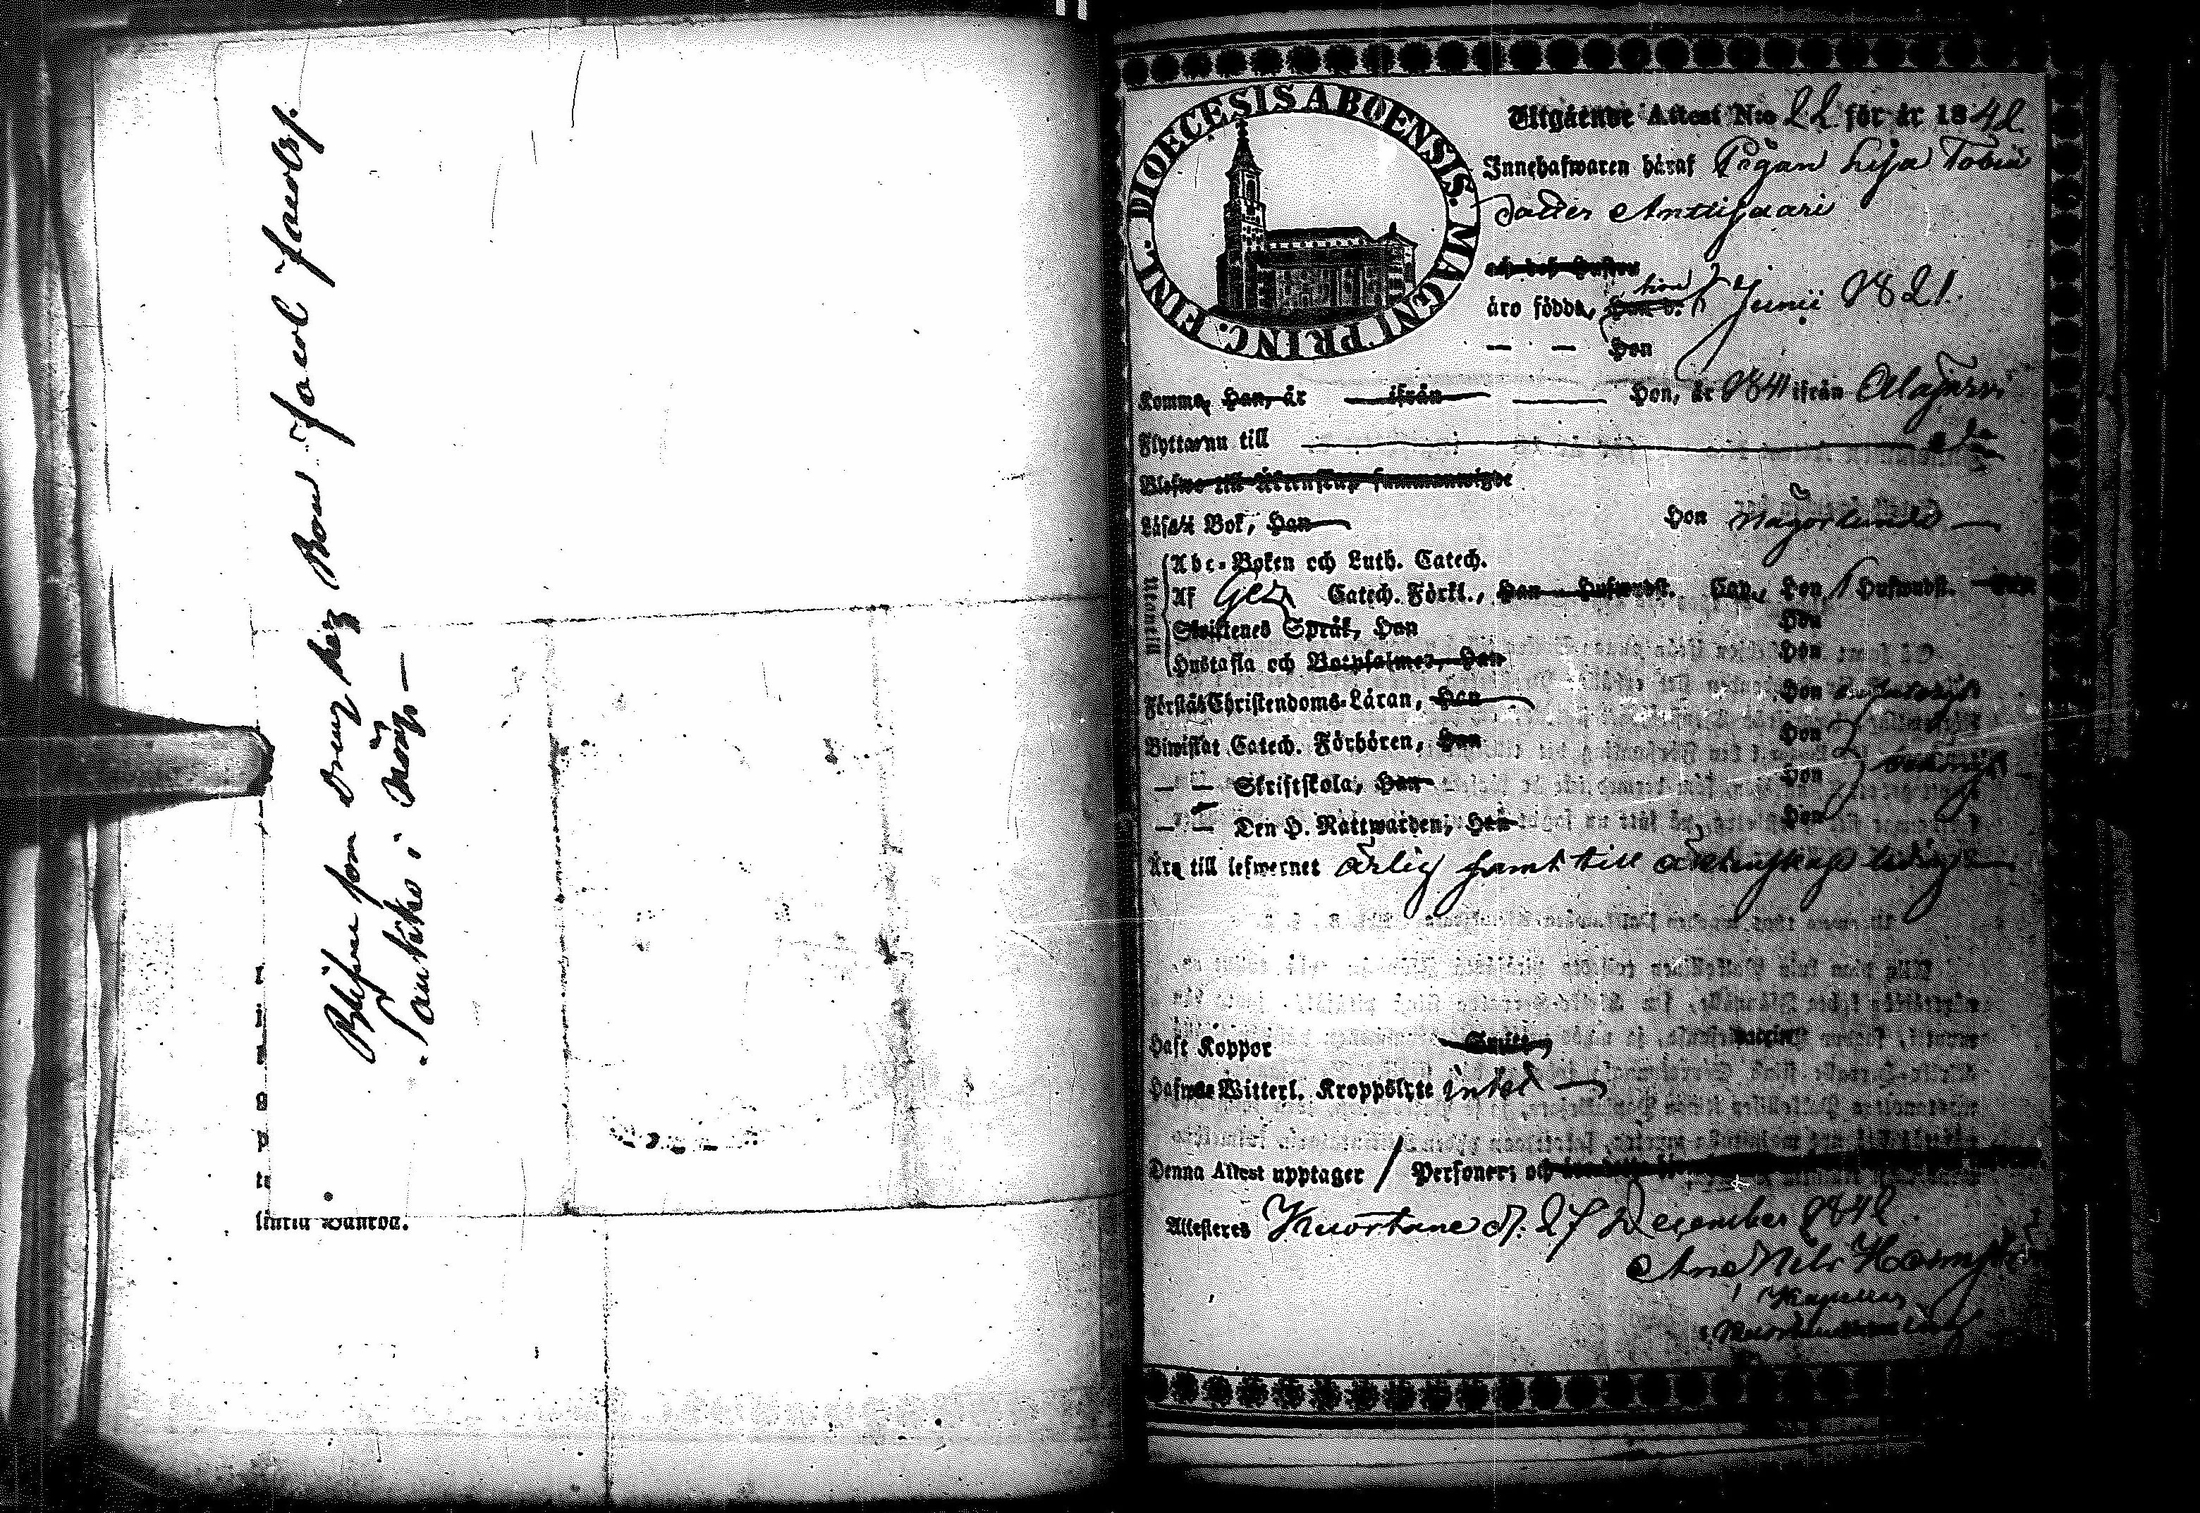 Jacob Jacobsf.
Blifwe som dreng hos Bon
Lantiko i
FINL. DIOECESIS ABOENSIS. MAGNI PRINC.
Utgående Attest N:o 22 för år 1842
Innehafwaren häraf Pigan Lisa Tobiæ
dotter Anttisaari
och dess Hustru
äro födda, Han d. hon 7 Junii 1821.
— — Hon
Komma, Han, år — ifrån — Hon, år 1841 ifrån Alajärvi
Flytta nu till
Blefwo till Äktenskap sammanwigde
Läsa i Bok, Han Hon någorlunda —
Utanläs
Abc-Boken och Luth. Catech.
Af Catech. Förkl., Han Hufwudst. Cap., Hon 1 Hufwudst.
Skriftenes Språk, Han Hon
Hustafla och Botpsalmer, Han Hon
Förstå Christendoms-Läran, Han Hon
Biwistat Catech. Förhören, Han Hon
— — Skriftskola, Han Hon
— — Den H. Nattwarden, Han Hon
Äro till lefwernet ärlig samt till äktenskap ledig —
Haft Koppor
Hafwa Witterl. Kroppslyte intet —
Denna Attest upptager 1 Personer; och
Attesteras Kuortane d. 27 December 1842
And Nils
Kapellan